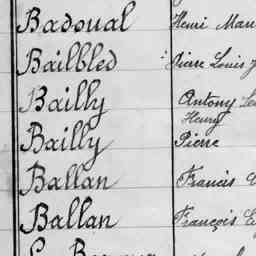 Badoual Henri
Bailbled Pierre Louis
Bailly Antony
Henry
Bailly Pierre
Ballan Francis
Ballan François